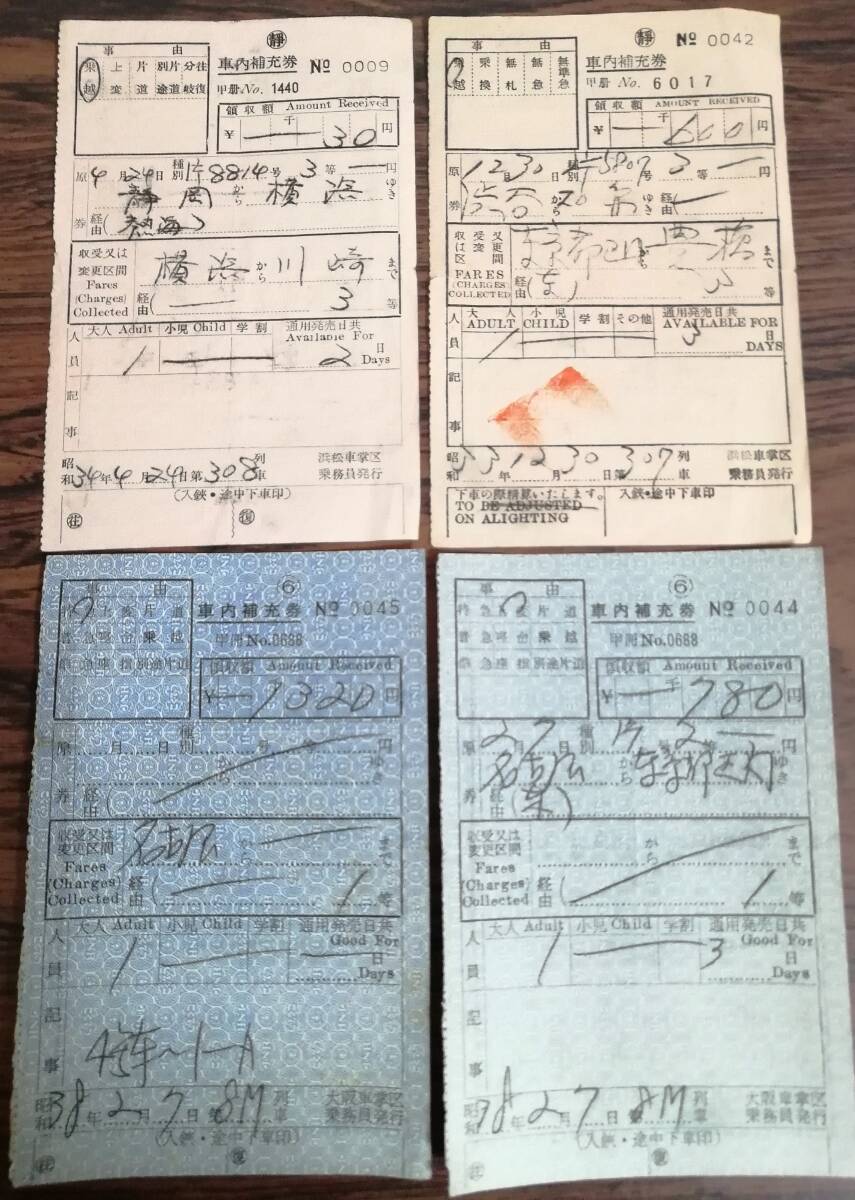 事由
乗越
上変
片道
別片途道
分岐
往復
静
車内補充券 No 0009
甲冊 No. 1440
領収額 Amount Received
¥ 一 千 30 円
原券 4月24日 種別 片 8814号 3等 一円
静岡 から 横浜 ゆき
経由(熱海)
収受又は変更区間 Fares (Charges) Collected
横浜 から 川崎 まで
経由( 3 等
人員 大人 Adult 小児 Child 学割 通用発売日共 Available For
1 2 日 Days
記事
昭和34年4月24日第308列車 浜松車掌区乗務員発行
(入鋏・途中下車印)
往 復
事由
乗越
乗換
無札
無急
無準急
静
No 0042
車内補充券
甲冊 No. 6017
領収額 AMOUNT RECEIVED
¥ 一 千 600 円
原券 12月30日 種別 号 3等 一円
から ゆき
経由(
収受又は変更区間 FARES (CHARGES) COLLECTED
から 豊橋 まで
経由(東) 3 等
人員 大人 ADULT 小児 CHILD 学割 その他 通用発売日共 AVAILABLE FOR
1 3 日 DAYS
記事
昭和33年12月30日第307列車 浜松車掌区乗務員発行
下車の際精算いたします。 入鋏・途中下車印
TO BE ADJUSTED
ON ALIGHTING
事由
⑥
車内補充券 No 0045
甲冊 No.0688
領収額 Amount Received
¥ 一 千 1320 円
原券 月 日 種別 号 等 円
から ゆき
経由(
収受又は変更区間 Fares (Charges) Collected
名古屋 から まで
経由( 1 等
人員 大人 Adult 小児 Child 学割 通用発売日共 Good For
1 日 Days
記事
4号車〜1-A
昭和38年2月7日第8M列車 大阪車掌区乗務員発行
(入鋏・途中下車印)
往 復
事由
⑥
車内補充券 No 0044
甲冊 No.0688
領収額 Amount Received
¥ 一 千 780 円
原券 2月7日 種別 片 号 2等 一円
名古屋 から 東京都区内 ゆき
経由(東)
収受又は変更区間 Fares (Charges) Collected
から まで
経由( 1 等
人員 大人 Adult 小児 Child 学割 通用発売日共 Good For
1 3 日 Days
記事
昭和38年2月7日第8M列車 大阪車掌区乗務員発行
(入鋏・途中下車印)
往 復